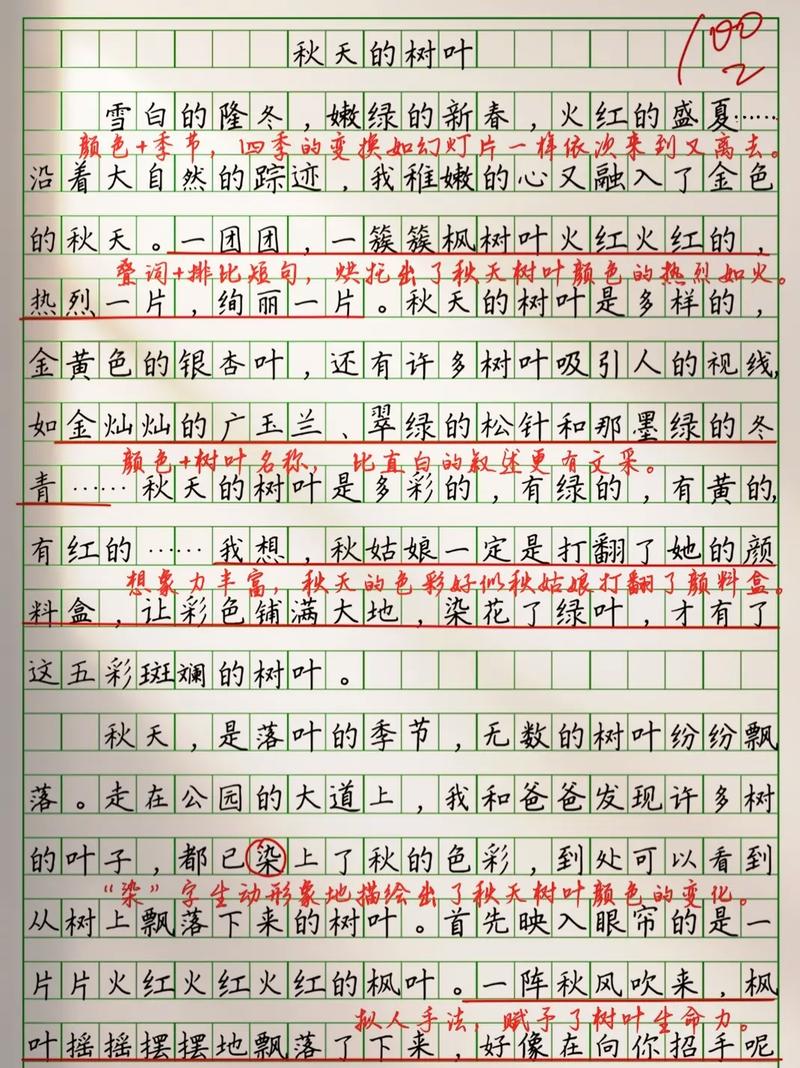 秋天的树叶
100
雪白的隆冬，嫩绿的新春，火红的盛夏……
颜色+季节，四季的变换如幻灯片一样依次来到又离去。
沿着大自然的踪迹，我稚嫩的心又融入了金色
的秋天。一团团，一簇簇枫树叶火红火红的，
叠词+排比短句，烘托出了秋天树叶颜色的热烈如火。
热烈一片，绚丽一片。秋天的树叶是多样的，
金黄色的银杏叶，还有许多树叶吸引人的视线，
如金灿灿的广玉兰、翠绿的松针和那墨绿的冬
颜色+树叶名称，比直白的叙述更有文采。
青……秋天的树叶是多彩的，有绿的，有黄的，
有红的……我想，秋姑娘一定是打翻了她的颜
想象力丰富，秋天的色彩好似秋姑娘打翻了颜料盒。
料盒，让彩色铺满大地，染花了绿叶，才有了
这五彩斑斓的树叶。
秋天，是落叶的季节，无数的树叶纷纷飘
落。走在公园的大道上，我和爸爸发现许多树
的叶子，都已染上了秋的色彩，到处可以看到
“染”字生动形象地描绘出了秋天树叶颜色的变化。
从树上飘落下来的树叶。首先映入眼帘的是一
片片火红火红火红的枫叶。一阵秋风吹来，枫
拟人手法，赋予了树叶生命力。
叶摇摇摆摆地飘落了下来，好像在向你招手呢